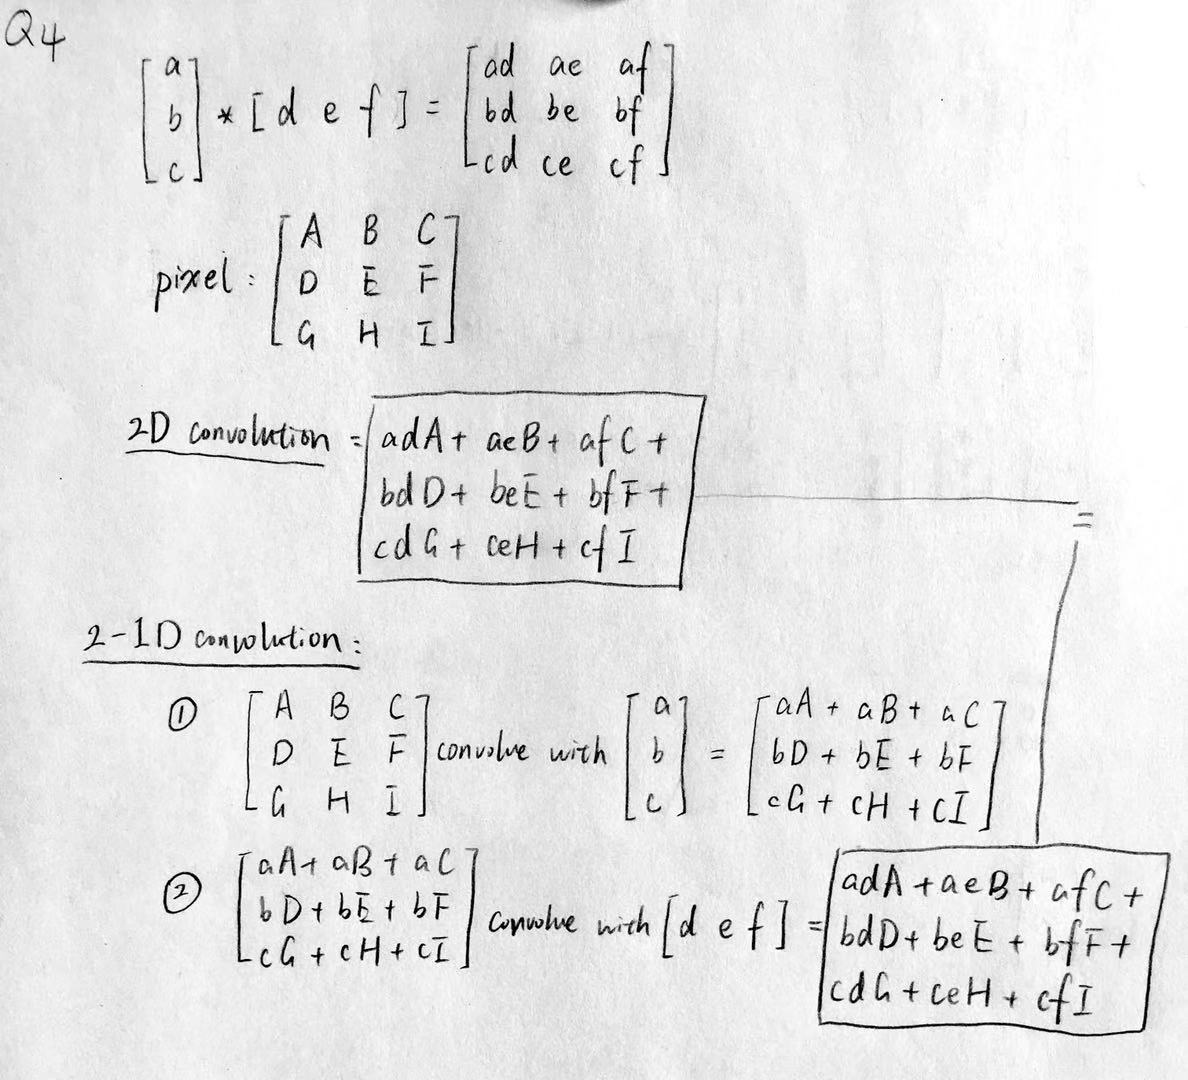 Q4
[a b c] * [d e f] = [ad ae af
bd be bf
cd ce cf]
pixel: [A B C
D E F
G H I]
2D convolution = adA + aeB + afC +
bdD + beE + bfF +
cdG + ceH + cfI
=
2-1D convolution:
① [A B C
D E F
G H I] convolve with [a b c] = [aA + aB + aC
bD + bE + bF
cG + cH + cI]
② [aA + aB + aC
bD + bE + bF
cG + cH + cI] convolve with [d e f] = adA + aeB + afC +
bdD + beE + bfF +
cdG + ceH + cfI